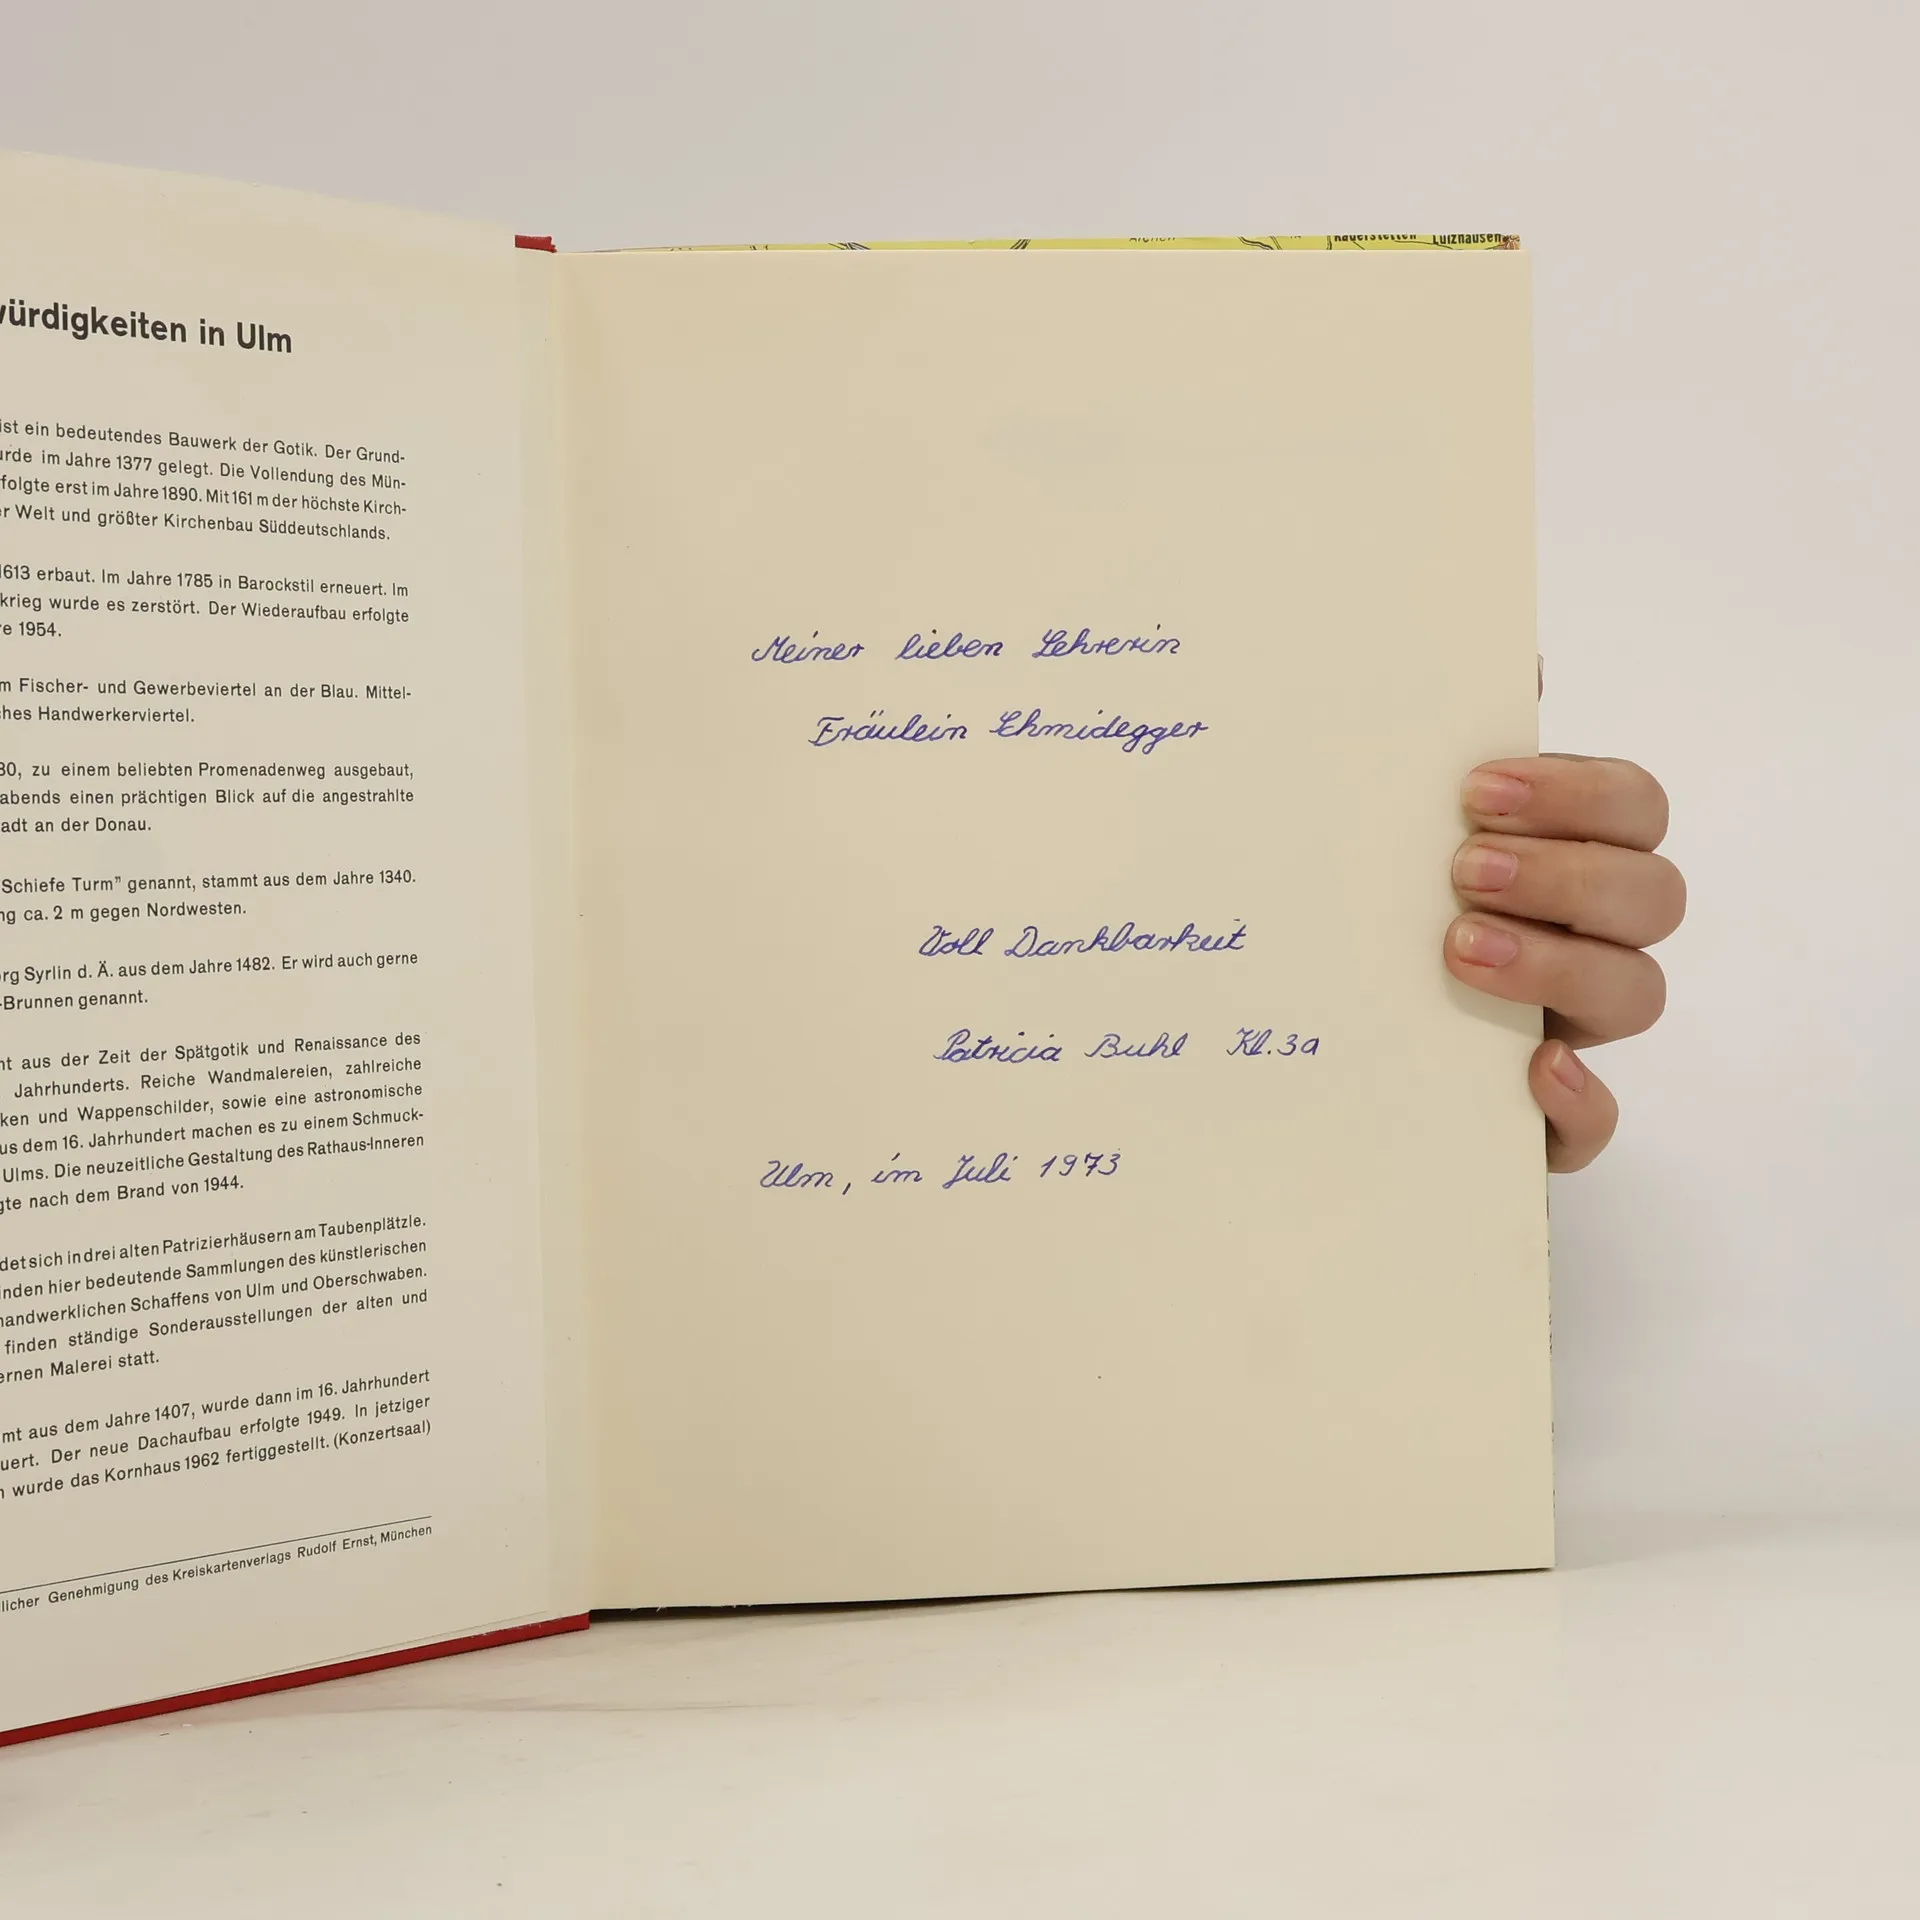 würdigkeiten in Ulm
ist ein bedeutendes Bauwerk der Gotik. Der Grund-
urde im Jahre 1377 gelegt. Die Vollendung des Mün-
folgte erst im Jahre 1890. Mit 161 m der höchste Kirch-
er Welt und größter Kirchenbau Süddeutschlands.
1613 erbaut. Im Jahre 1785 in Barockstil erneuert. Im
krieg wurde es zerstört. Der Wiederaufbau erfolgte
re 1954.
m Fischer- und Gewerbeviertel an der Blau. Mittel-
ches Handwerkerviertel.
80, zu einem beliebten Promenadenweg ausgebaut,
abends einen prächtigen Blick auf die angestrahlte
adt an der Donau.
Schiefe Turm" genannt, stammt aus dem Jahre 1340.
ng ca. 2 m gegen Nordwesten.
rg Syrlin d. Ä. aus dem Jahre 1482. Er wird auch gerne
-Brunnen genannt.
nt aus der Zeit der Spätgotik und Renaissance des
Jahrhunderts. Reiche Wandmalereien, zahlreiche
ken und Wappenschilder, sowie eine astronomische
us dem 16. Jahrhundert machen es zu einem Schmuck-
Ulms. Die neuzeitliche Gestaltung des Rathaus-Inneren
gte nach dem Brand von 1944.
det sich in drei alten Patrizierhäusern am Taubenplätzle.
inden hier bedeutende Sammlungen des künstlerischen
handwerklichen Schaffens von Ulm und Oberschwaben.
finden ständige Sonderausstellungen der alten und
ernen Malerei statt.
mt aus dem Jahre 1407, wurde dann im 16. Jahrhundert
uert. Der neue Dachaufbau erfolgte 1949. In jetziger
n wurde das Kornhaus 1962 fertiggestellt. (Konzertsaal)
licher Genehmigung des Kreiskartenverlags Rudolf Ernst, München
Luizhausen
Meiner lieben Lehrerin
Fräulein Schmidegger
Voll Dankbarkeit
Patricia Buhl Kl. 3a
Ulm, im Juli 1973